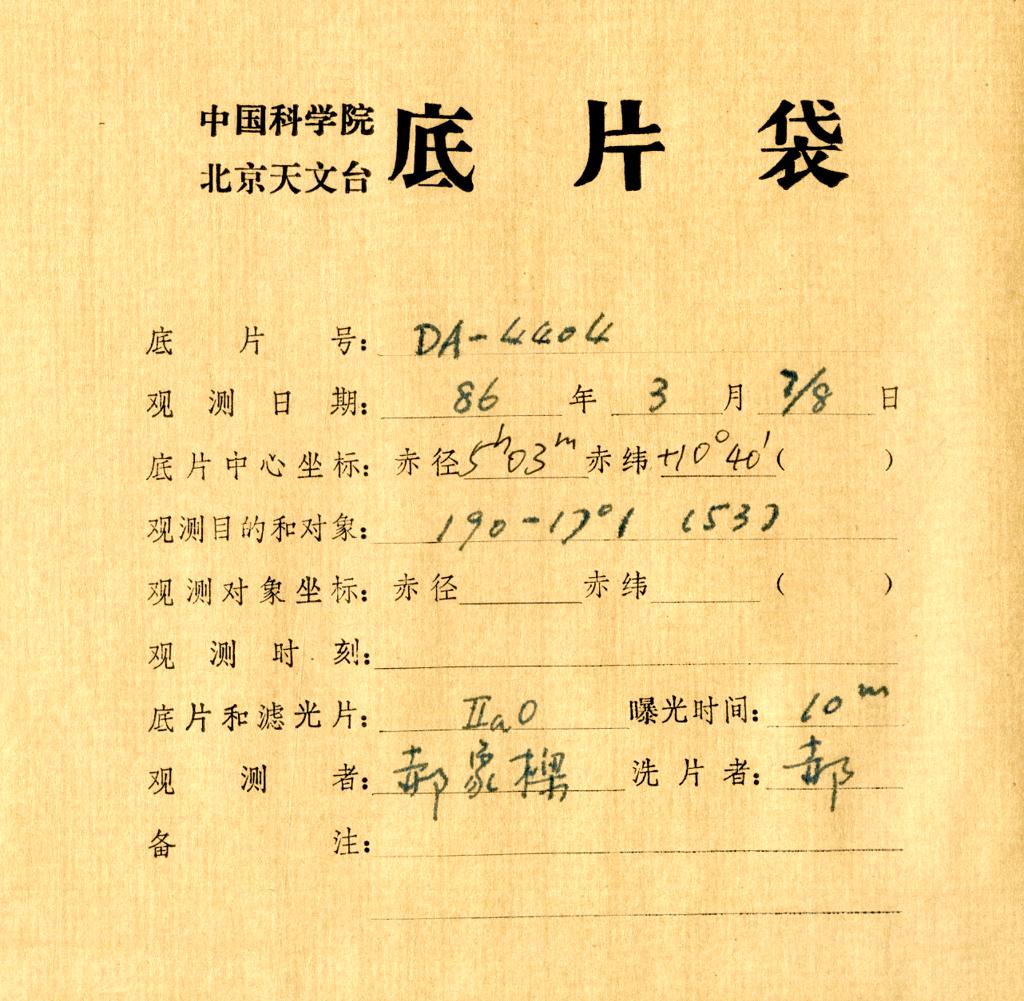 中国科学院
北京天文台
底片袋
底片号: DA-4404
观测日期: 86年3月7/8日
底片中心坐标: 赤径5h03m赤纬+10°40′( )
观测目的和对象: 190-17°1 (53)
观测对象坐标: 赤径 赤纬 ( )
观测时刻:
底片和滤光片: IIaO 曝光时间: 10m
观测者: 郝家樑 洗片者: 郝
备注: